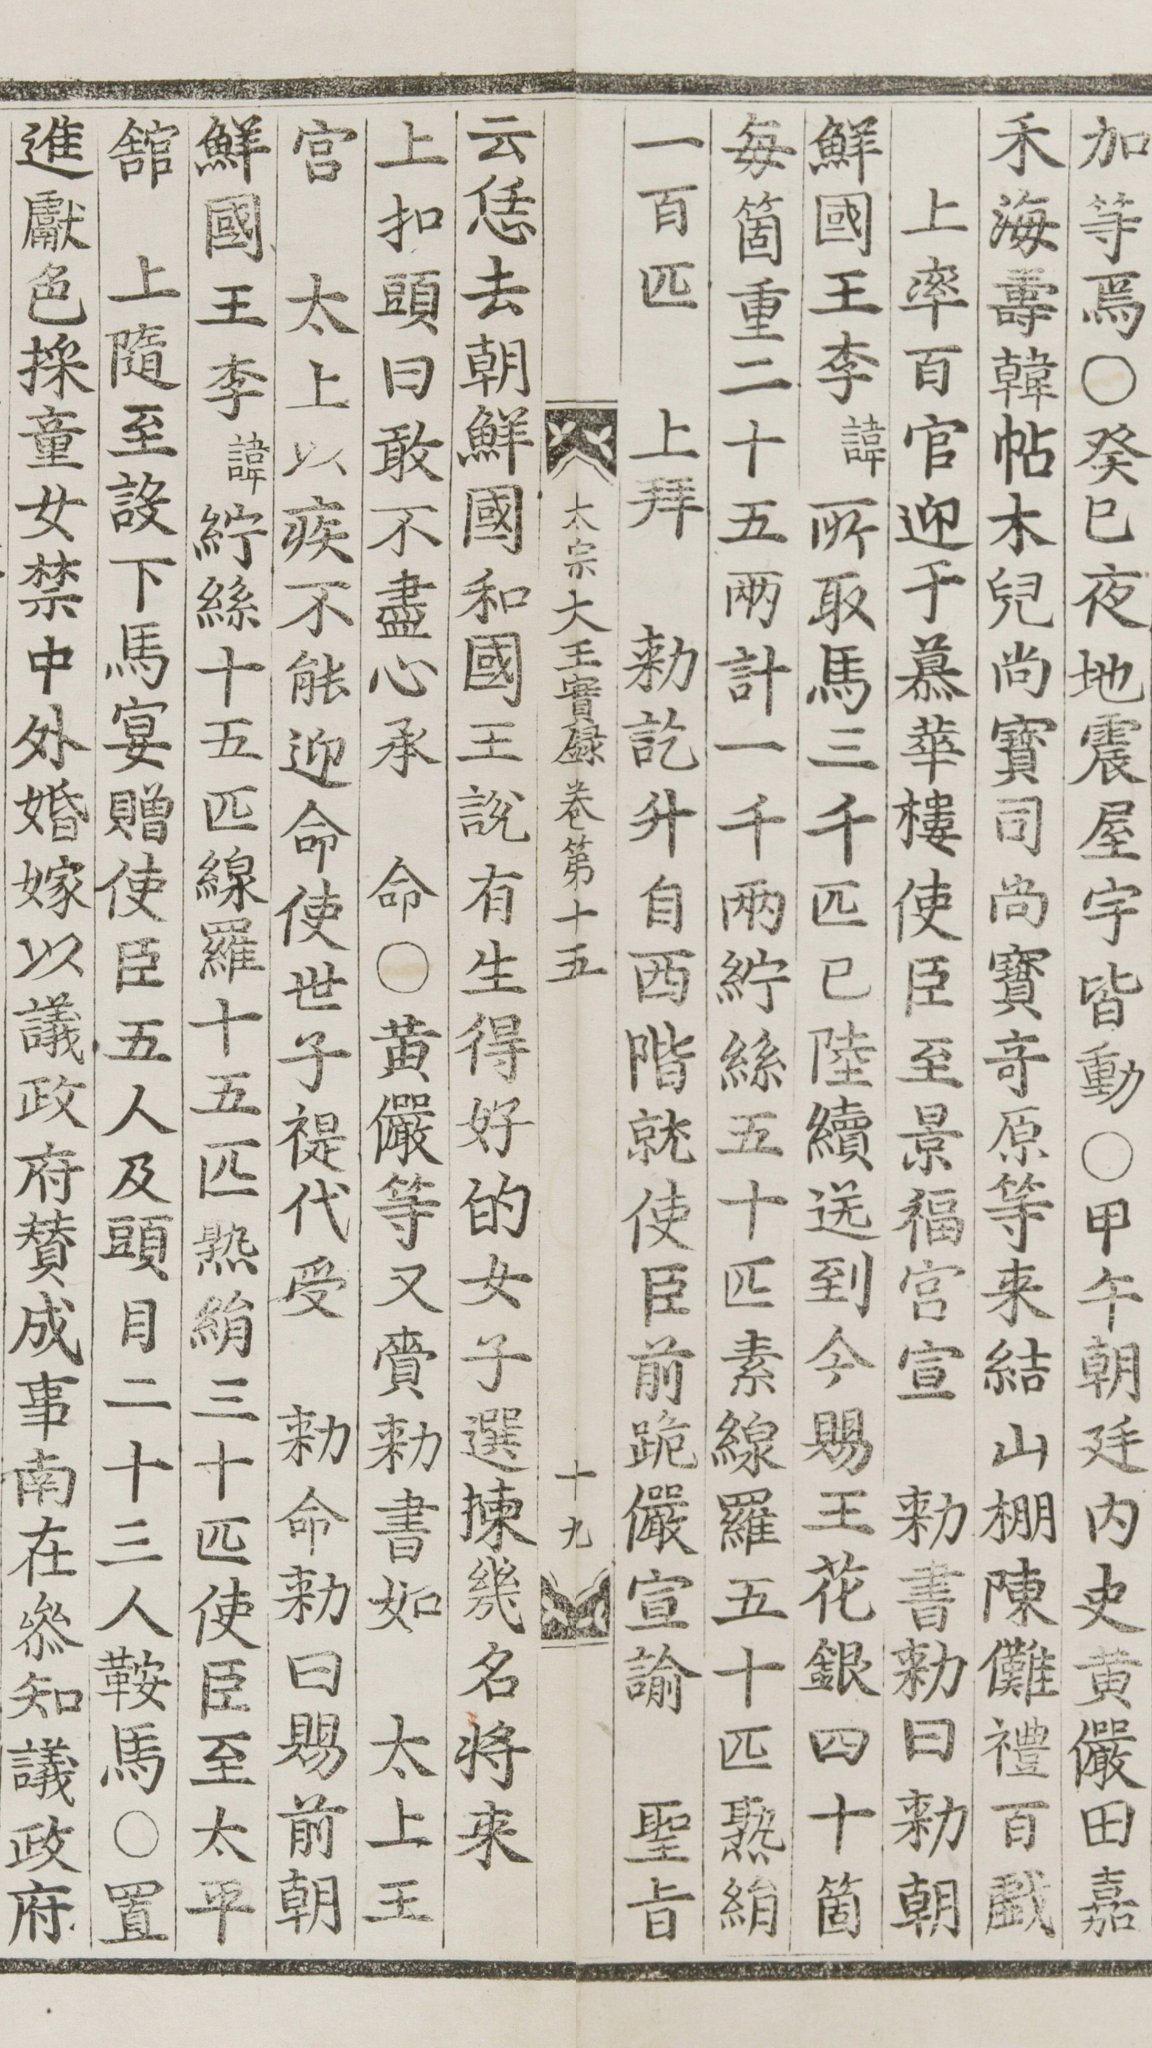 加等焉○癸巳夜地震屋宇皆動○甲午朝廷內史黃儼田嘉
禾海壽韓帖木兒尙寶司尙寶竒原等来結山棚陳儺禮百戲
上率百官迎于慕華樓使臣至景福宮宣 勑書勑曰勑朝
鮮國王李諱所取馬三千匹已陸續送到今賜王花銀四十箇
每箇重二十五兩計一千兩紵絲五十匹素線羅五十匹熟絹
一百匹 上拜 勑訖升自西階就使臣前跪儼宣諭 聖旨
太宗大王實錄卷第十五 十九
云恁去朝鮮國和國王說有生得好的女子選揀幾名将来
上扣頭曰敢不盡心承 命○黃儼等又賫勑書如 太上王
宮 太上以疾不能迎命使世子禔代受 勑命勑曰賜前朝
鮮國王李諱紵絲十五匹線羅十五匹熟絹三十匹使臣至太平
舘 上隨至設下馬宴贈使臣五人及頭目二十三人鞍馬○置
進獻色採童女禁中外婚嫁以議政府贊成事南在叅知議政府